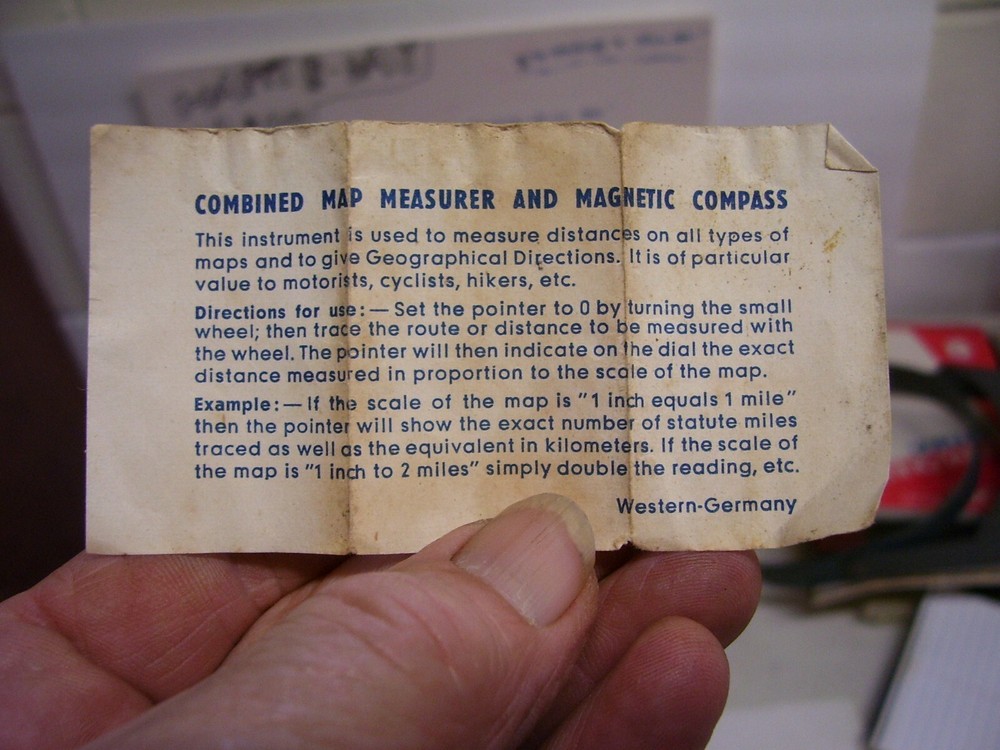 COMBINED MAP MEASURER AND MAGNETIC COMPASS
This instrument is used to measure distances on all types of
maps and to give Geographical Directions. It is of particular
value to motorists, cyclists, hikers, etc.
Directions for use:— Set the pointer to 0 by turning the small
wheel; then trace the route or distance to be measured with
the wheel. The pointer will then indicate on the dial the exact
distance measured in proportion to the scale of the map.
Example:— If the scale of the map is "1 inch equals 1 mile"
then the pointer will show the exact number of statute miles
traced as well as the equivalent in kilometers. If the scale of
the map is "1 inch to 2 miles" simply double the reading, etc.
Western-Germany